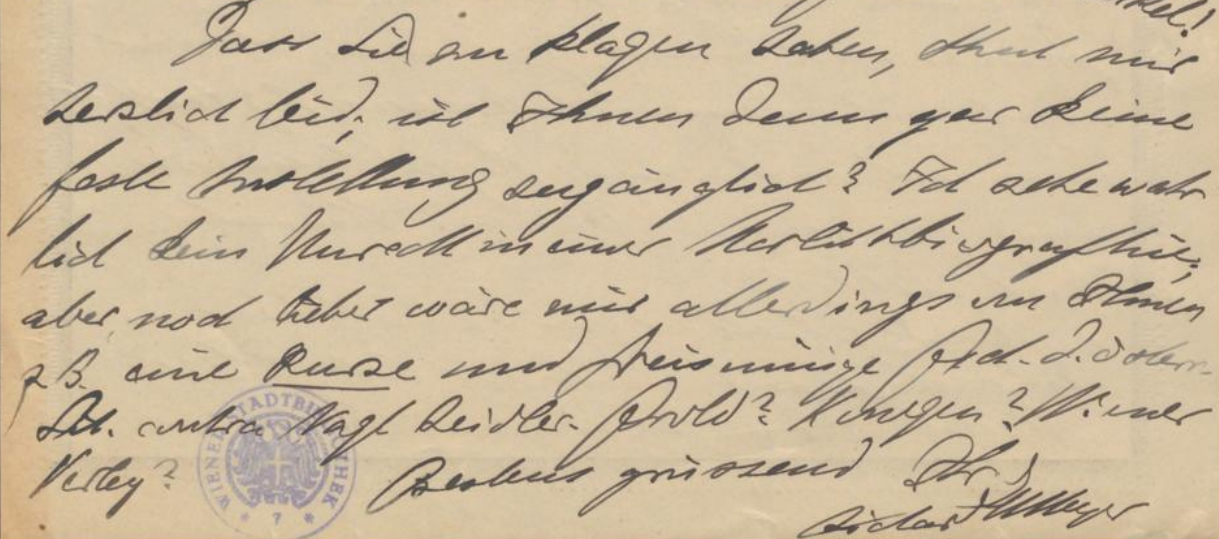 Dass Sie zu klagen haben, thut mir
herzlich leid; ist Ihnen denn gar keine
feste Anstellung zugänglich? Ich sehe wahr
lich kein Unrecht in einer
aber noch lieber wäre mir allerdings von Ihnen
z.B. eine kurze und freisinnige Gesch. d. österr.
Lit. contra Nagl Zeidler. Gerold? Konegen? Wiener
Verlag? Bestens grüssend Ihr
Richard M Meyer
WIENER STADTBI THEK
7